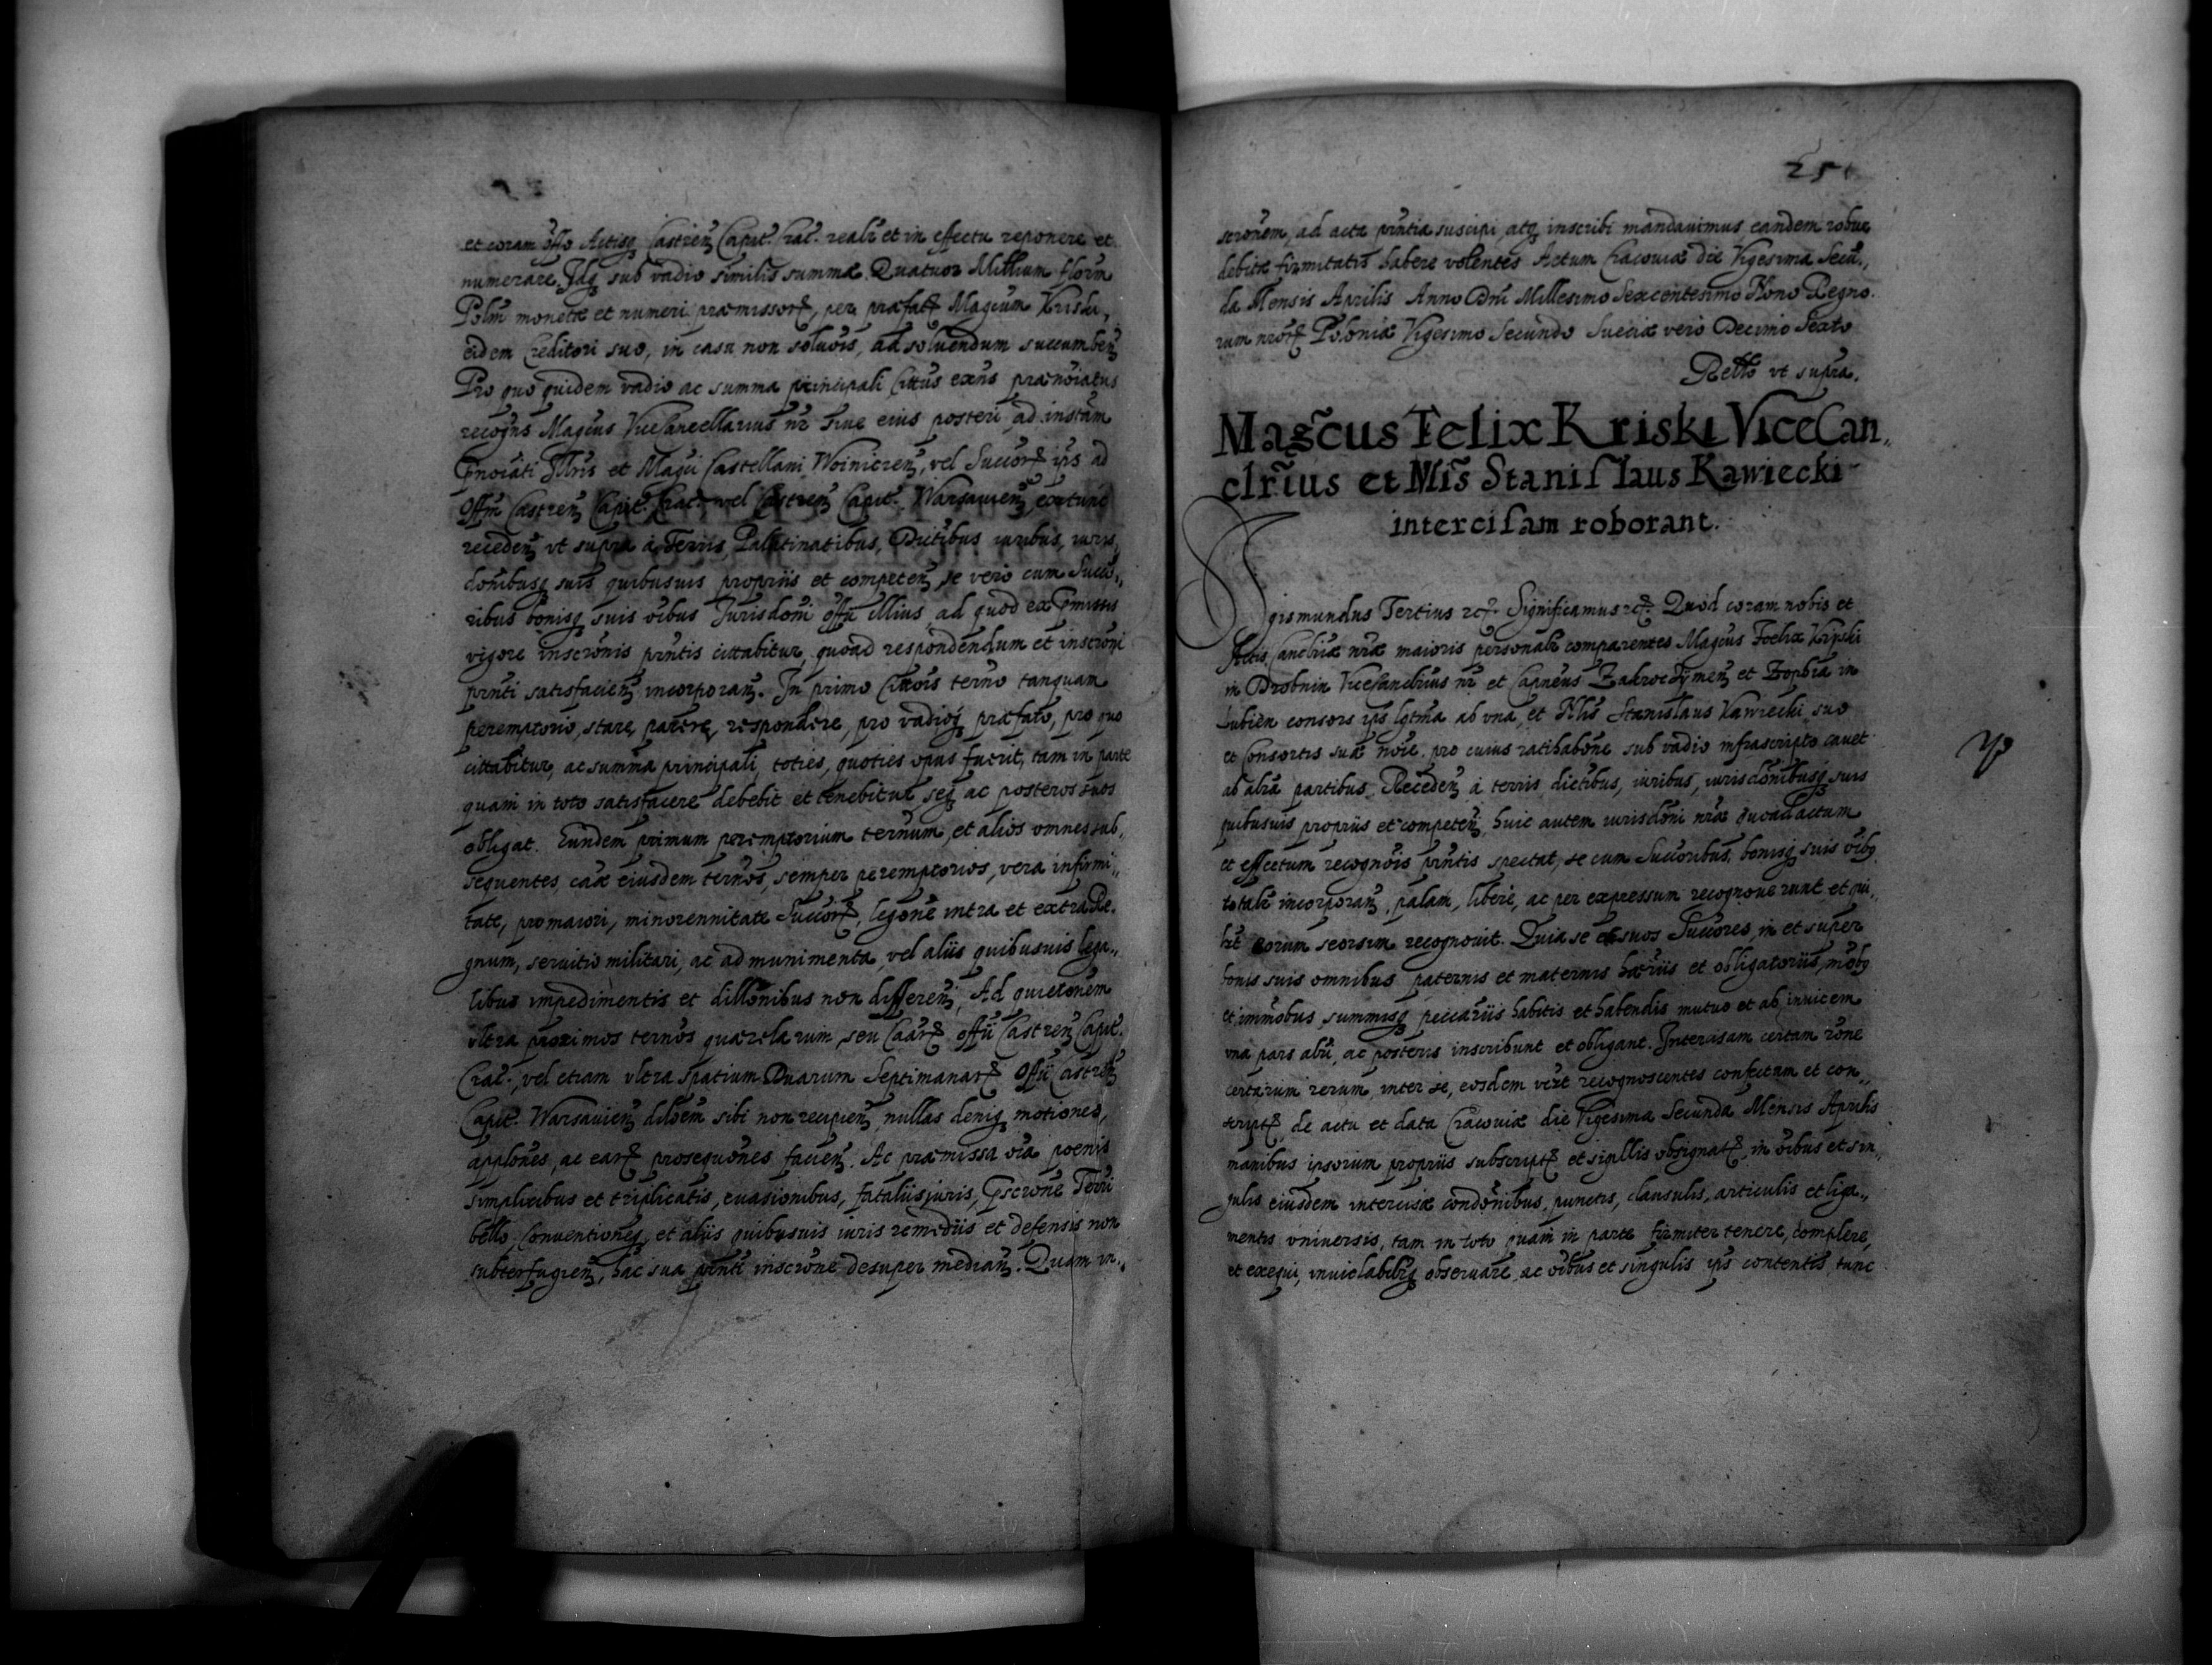 et coram offo Actisq Castren Capit. Crac. realr et in effectu reponere et
numerare. Idq sub vadio similis summæ Quatuor Millium floren
Polm monetæ et numeri præmissor, per præfat Magcum Kriski,
eidem Creditori suo, in casu non solvois, ad solvendum succumben
Pro quo quidem vadio ac summa principali Cittus exns prænoiatus
recogns Magcus ViceCancellarius nr sive eius posteri, ad instam
pnoiati Illris et Magci Castellani Woinicen, vel Succor ips ad
Offm Castren Capit. Crac. vel Castren Capit. Warsavien, extunc
receden vt supra à Terris, Palatinatibus, Dictibus iuribus, iuris,
donibusq suis quibusvis propriis et competen, se vero cum Succo,,
ribus bonisq suis oibus Jurisdoni offii illius, ad quod ex pmissis
vigore inscronis pntis cittabitur, quoad respondendum et inscroni
pnti satisfacien incorporan. In primo Cittois termo tanquam
peremptorio, stare, parere, respondere, pro vadioq præfato, pro quo
cittabitur, ac summa principali, toties, quoties opus fuerit, tam in parte
quam in toto satisfacere debebit et tenebitur seq ac posteros suos
obligat. Eundem primum peremptorium termum, et alios omnes sub,
sequentes, caæ eiusdem termos, semper peremptorios, vera infirmi,,
tate, pro maiori, minorennitate Succor, legone intra et extra Re,
gnum, servitio militari, ac ad munimenta, vel aliis quibusvis lega,,
libus impedimentis et dillonibus non differen, Ad quietonem
vltra proximos termos quærelarum, seu Caar offii Castren Capit.
Crac., vel etiam vltra spatium Duarum Septimanar Offii Castren
Capit. Warsavien diloem sibi non recipien, nullas deniq motiones,
applones, ac ear prosequones facien. Ac præmissa oia poenis
simplicibus et triplicatis, evasionibus, fataliis juris, pscrone Terri
bello, Conventioneq, et aliis quibusvis iuris remediis et defensis non
subterfugien, hac sua pnti inscrone desuper median. Quam in,,
251
scronem, ad acta pntia suscipi, atq inscribi mandavimus eandem robur
debitæ firmitatis habere volentes Actum Cracoviæ die Vigesima Secu,,
da Mensis Aprilis Anno Dni Millesimo Sexcentesimo Nono Regno,
rum nror Poloniæ Vigesimo Secundo Sueciæ vero Decimo Sexto
Retto vt supra.
Magcus Felix Kriski ViceCan,,
clrius et Mis Stanislaus Kawiecki
intercisam roborant.
Sigismundus Tertius rc. Significamus rc. Quod coram nobis et
Actis Canclriæ nræ maioris personalr comparentes Magcus Foelix Kriski
in Drobnin ViceCanclrius nr et Capneus Zakroczymen et Zophia in
Lubien consors ips lgtma ab vna, et Mis Stanislaus Kawiecki suo
et Consortis suæ noie, pro cuius ratihabone sub vadio infrascripto cavet
ab altra partibus. Receden à terris dictibus, iuribus, iurisdonibusq suis
quibusvis propriis et competen, huic autem iurisdoni nræ quoad actum
et effectum recognois pntis spectat, se cum Succoribus, bonisq suis oibq
totalr incorporan, palam, libere, ac per expressum recognoverunt et qui,,
lbt eorum seorsim recognovit. Quia se et suos Succores, in et super
bonis suis omnibus paternis et maternis hæriis et obligatoriis, mobq
et immobus, summisq peccariis habitis et habendis mutuo et ab invicem
vna pars altri, ac posteris inscribunt et obligant. Intercisam certam rone
certarum rerum inter se, eosdem vtrt recognoscentes confectam et con,,
script, de actu et data Cracoviæ die Vigesima Secunda Mensis Aprilis
manibus ipsorum propriis subscript et sigillis obsignat, in oibus et sin,,
gulis eiusdem intercisæ condonibus, punctis, clausulis, articulis et liga,,
mentis vniversis, tam in toto quam in parte firmiter tenere, complere,
et exequi, inviolabilrq observare, ac oibus et singulis ips contentis, tunc